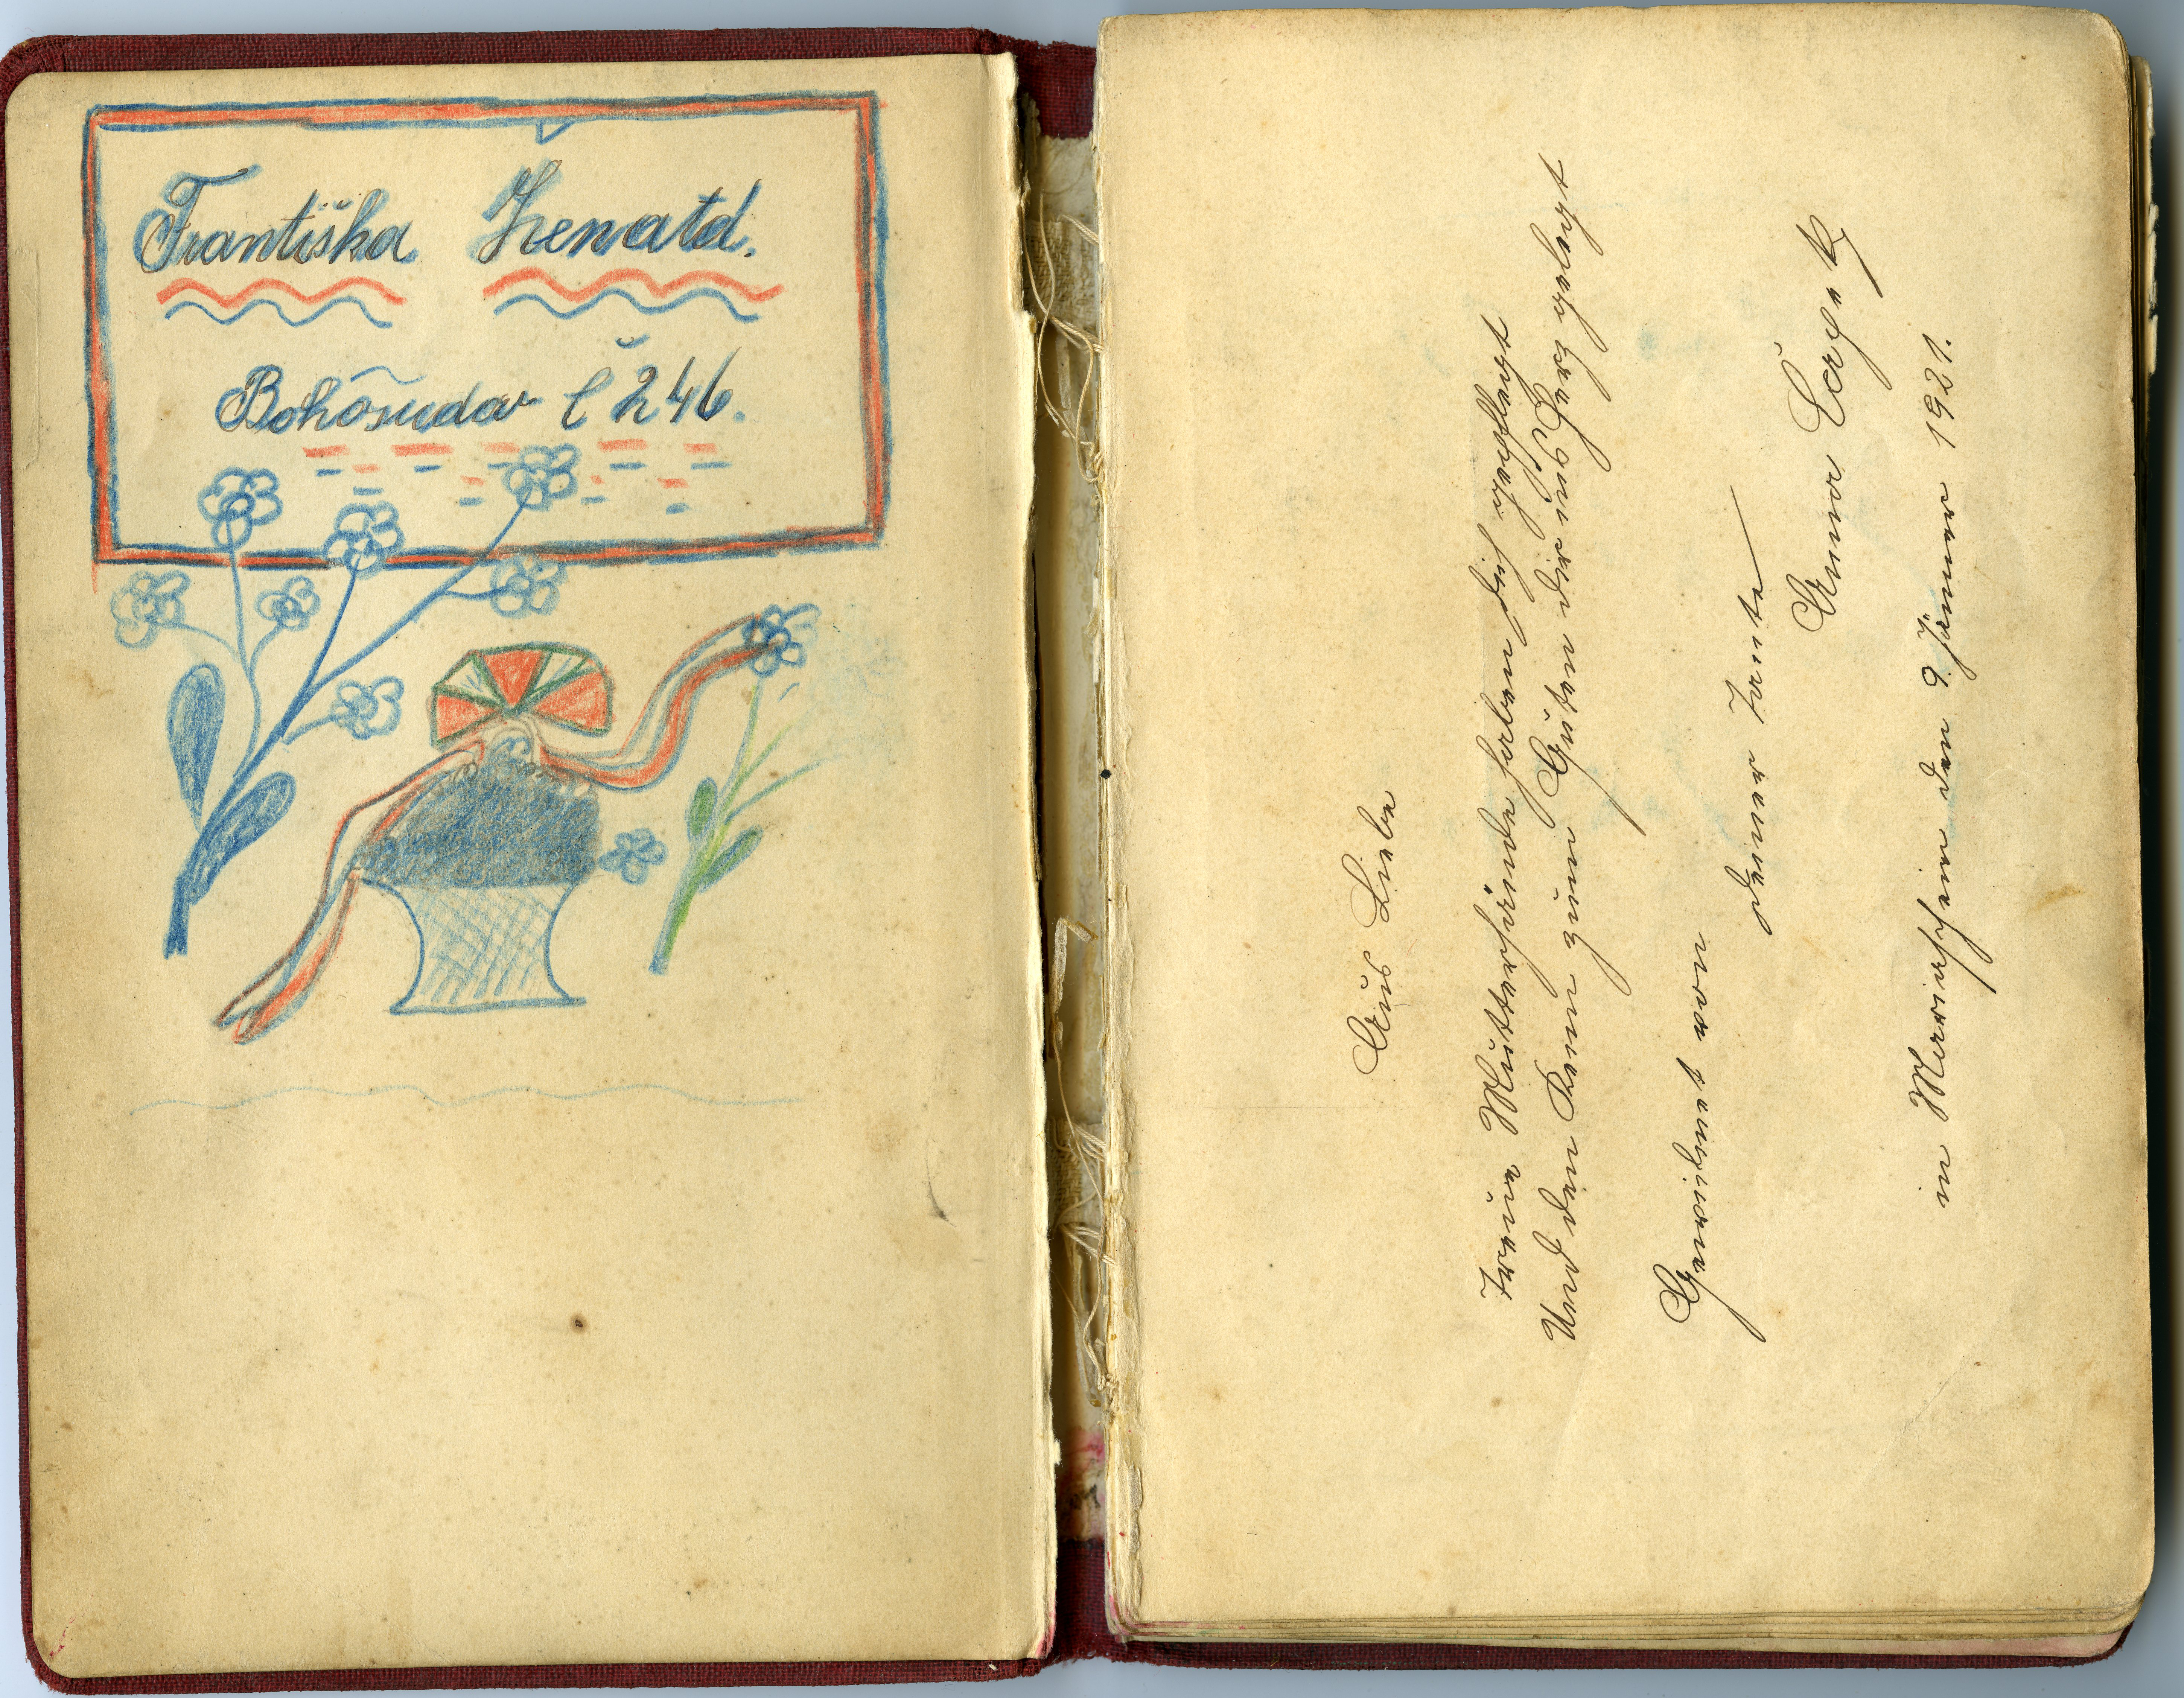 Františka
Bohősudov č 246.
Aus Liebe
Treue Mutterhände haben dich gepflegt
Und den Keim zum Guten dir ins Herz gelegt
Gewidmet von
deiner Tante
Anna
in Mariaschein den 9. Jänner 1921.